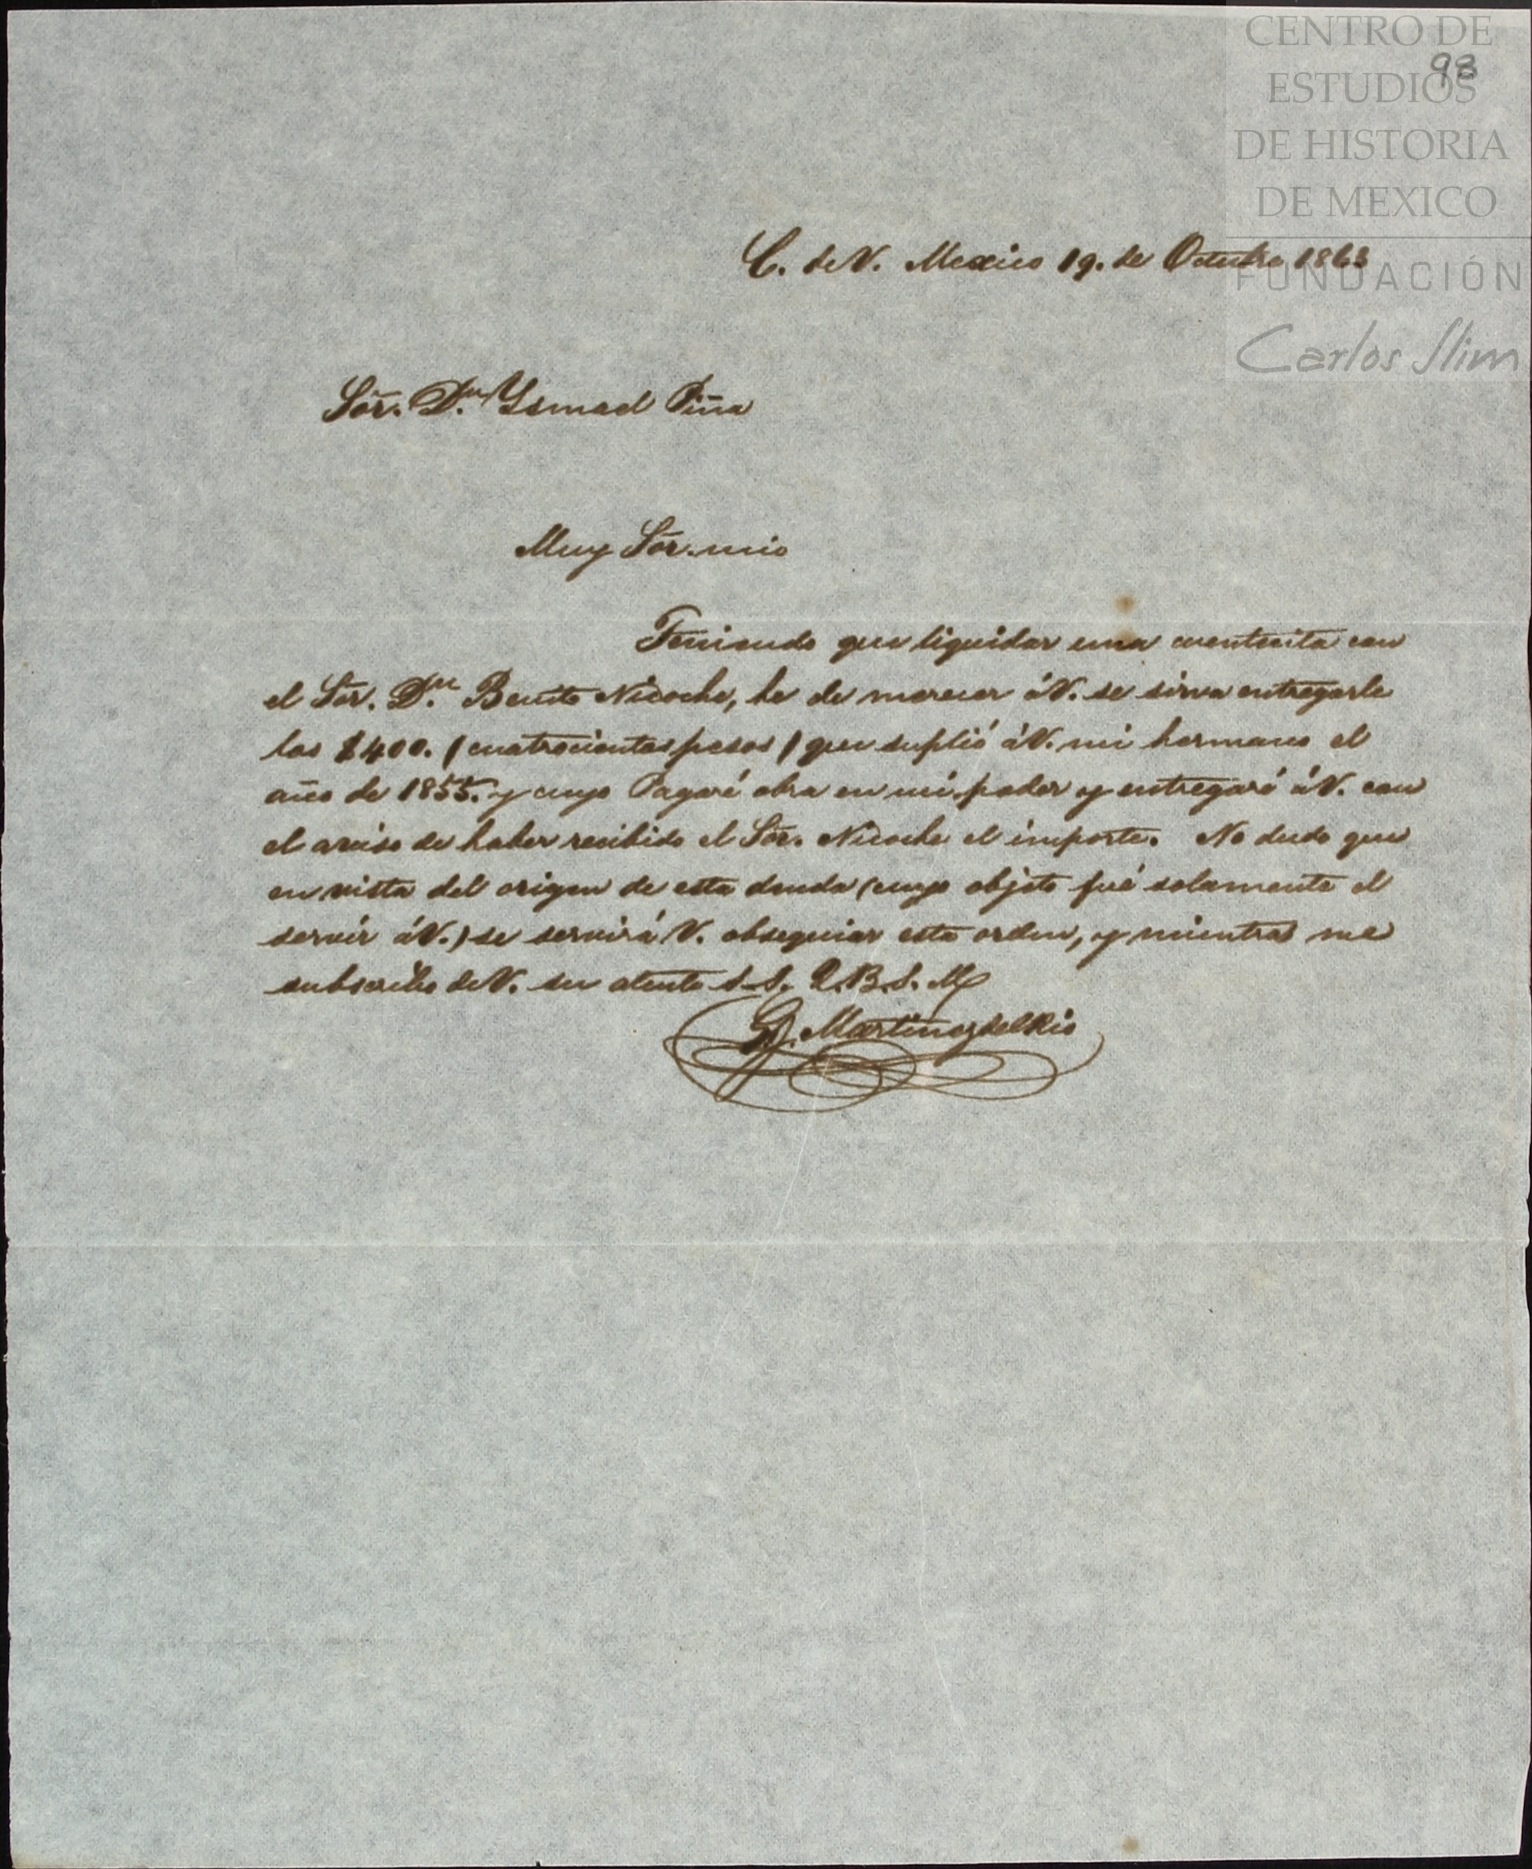 CENTRO DE
ESTUDIOS
DE HISTORIA
DE MEXICO
FUNDACIÓN
Carlos Slim
98
C. de V. Mexico 19. de Octubre 1863
Sõr. Dn. Ysmael Piña
Muy Sõr. mio
Teniendo que liquidar una cuentecita con
el Sõr. Dn. Benito Nicoche, he de merecer á V. se sirva entregarle
los $400. (cuatrocientos pesos) que suplió á V. mi hermano el
año de 1855. y cuyo Pagaré obra en mi poder y entregaré á V. con
el aviso de haber recibido el Sõr. Nicoche el importe. No dudo que
en vista del origen de esta deuda (cuyo objeto fué solamente el
servir á V.) se servirá V. obsequiar esta orden, y mientras me
subscribo de V. su atento S.S. Q.B.S.M
Martinez del Rio